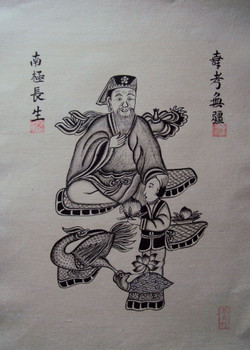 壽考無疆
南極長生